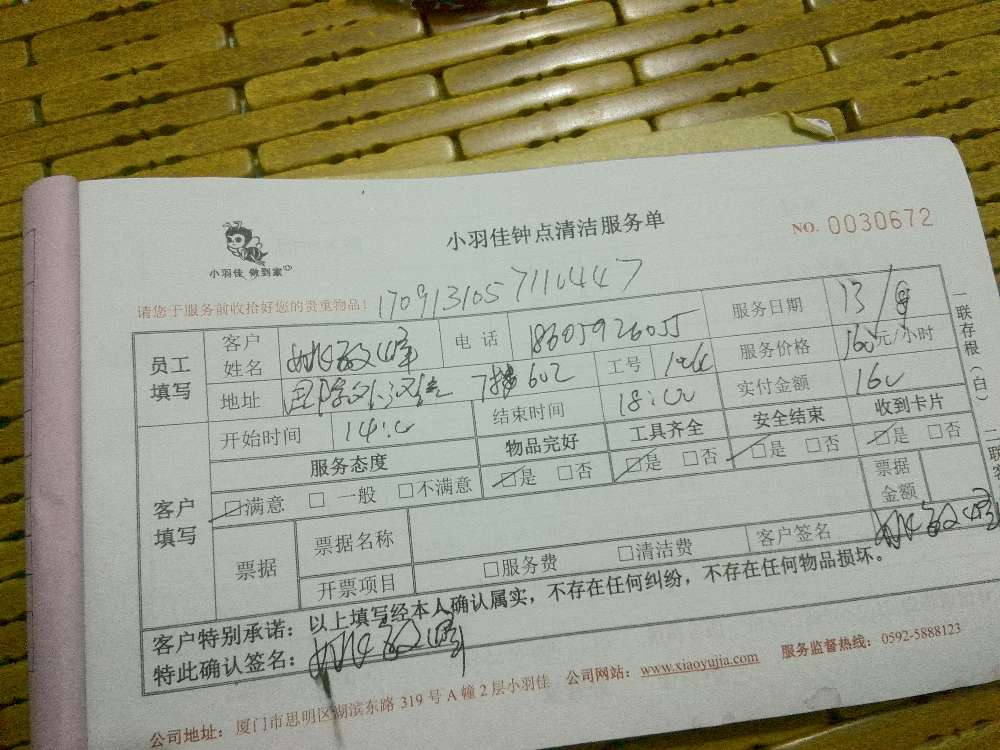 小羽佳 做到家
小羽佳钟点清洁服务单
NO. 0030672
请您于服务前收拾好您的贵重物品!
员工填写
客户姓名
电话 18605926055
服务日期 13/9
地址 7楼602
工号
服务价格 160元/小时
开始时间 14:00
结束时间 18:00
实付金额 160
客户填写
服务态度 物品完好 工具齐全 安全结束 收到卡片
满意 一般 不满意 是 否 是 否 是 否 是 否
票据 票据名称 票据金额
开票项目 服务费 清洁费 客户签名
客户特别承诺:以上填写经本人确认属实,不存在任何纠纷,不存在任何物品损坏。
特此确认签名:
公司地址:厦门市思明区湖滨东路 319 号 A 幢 2 层小羽佳 公司网站:www.xiaoyujia.com 服务监督热线:0592-5888123
一联存根(白)